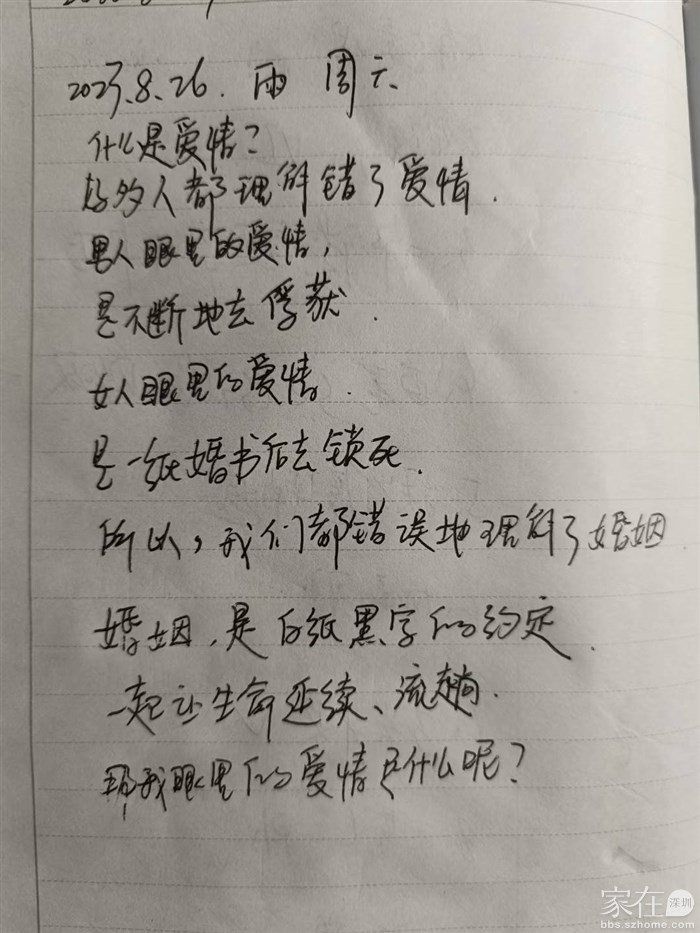 2023.8.26. 雨 周六.
什么是爱情?
好多人都理解错了爱情.
男人眼里的爱情,
是不断地去俘获.
女人眼里的爱情.
是一纸婚书后去锁死.
所以,我们都错误地理解了婚姻
婚姻,是白纸黑字的约定.
一起让生命延续、流趟.
那我眼里的爱情是什么呢?
家在深圳
bbs.szhome.com